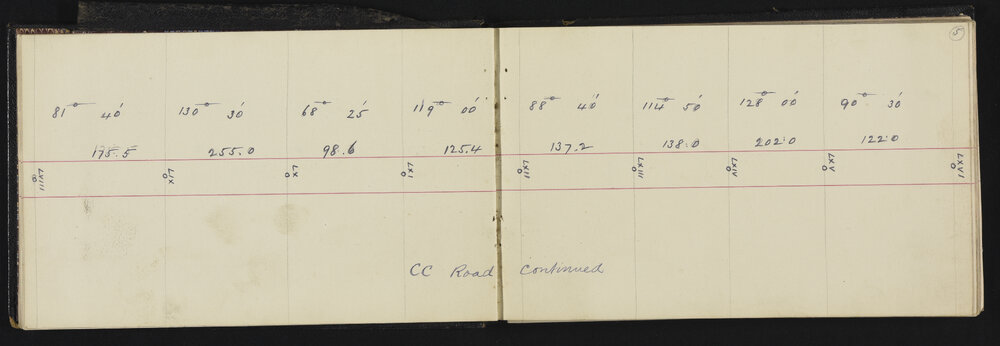 5
81° 40' 130° 30' 68° 25' 119° 00' 88° 40' 114° 50' 128° 00' 90° 30'
175.5 255.0 98.6 125.4 137.2 138.0 202.0 122.0
LXIX LXX LXXI LXXII LXXIII LXXIV LXXV LXXVI
CC Road continued